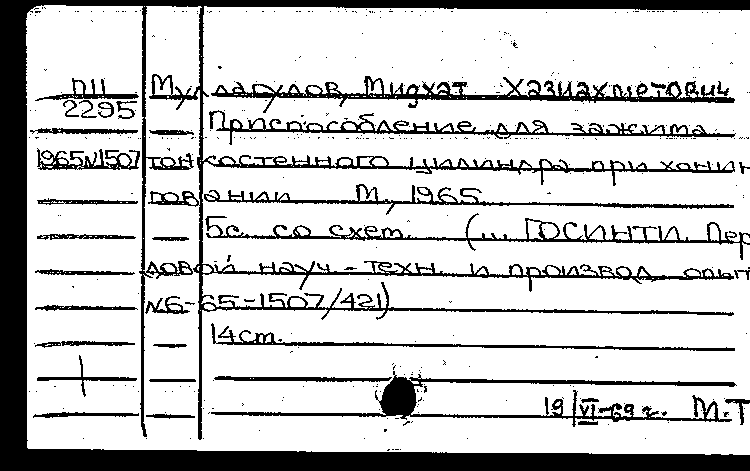 ПII Муллагулов, Мидхат Хазиахметович
2295 Приспособление для зажима
1965N1507 тонкостенного цилиндра при хонин
говании М., 1965
5с. со схем. (... ГОСИНТИ. Пер
довой науч.-техн. и производ. опыт
N6-65-1507/421)
14см.
19/VI-69г. М.Т